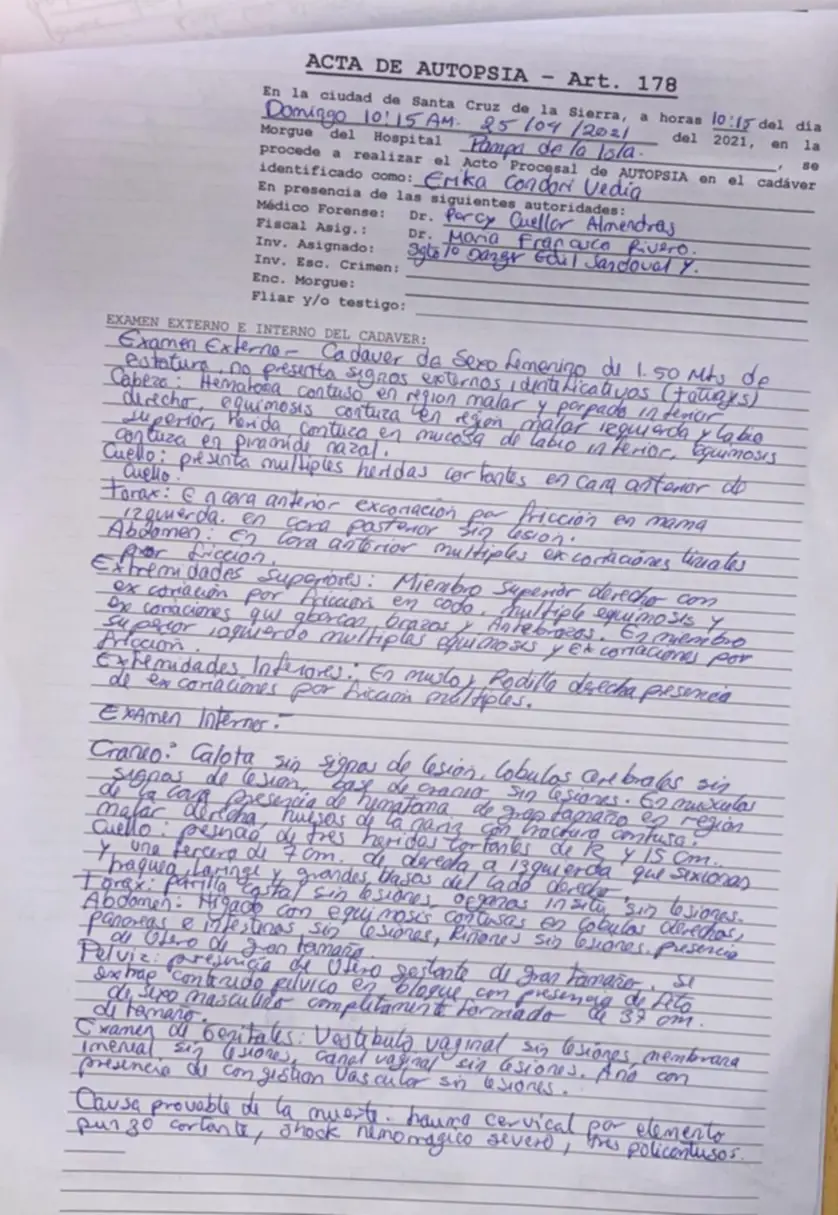 ACTA DE AUTOPSIA - Art. 178
En la ciudad de Santa Cruz de la Sierra, a horas 10:15 del día
Domingo 10:15 AM. 25/04/2021 del 2021, en la
Morgue del Hospital Pampa de la Isla. , se
procede a realizar el Acto Procesal de AUTOPSIA en el cadáver
identificado como: Erika Condori Vedia
En presencia de las siguientes autoridades:
Médico Forense: Dr. Percy Cuellar Almendras
Fiscal Asig.: Dr. Maria Francisca Rivero.
Inv. Asignado: Sgto 1o Edil Sandoval Y.
Inv. Esc. Crimen:
Enc. Morgue:
Fliar y/o testigo:
EXAMEN EXTERNO E INTERNO DEL CADAVER:
Examen Externo - Cadaver de Sexo femenino de 1.50 Mts de
estatura, no presenta signos externos identificativos (tatuajes)
Cabeza: Hematoma contuso en region malar y parpado inferior
derecho, equimosis contuza en region malar izquierda y labio
superior, Herida contuza en mucosa de labio inferior, Equimosis
contuza en piramide nazal.
Cuello: presenta multiples heridas cortantes en cara anterior de
cuello.
Torax: En cara anterior excoriación por fricción en mama
izquierda. en cara posterior sin lesion.
Abdomen: En cara anterior multiples excoriaciones lineales
por friccion.
Extremidades Superiores: Miembro superior derecho con
excoriación por friccion en codo, multiple equimosis y
excoriaciones que abarcan brazos y Antebrazos. En miembro
superior izquierdo multiples equimosis y excoriaciones por
friccion.
Extremidades Inferiores: En muslo y Rodilla derecha presencia
de excoriaciones por friccion multiples.
Examen Interno:-
Craneo: Calota sin signos de lesión, lobulos cerebrales sin
signos de lesion, base de craneo sin lesiones. En musculos
de la cara presencia de hematoma de gran tamaño en región
malar derecha, huesos de la nariz con fractura contusa.
Cuello: presencia de tres heridas cortantes de 12 y 15 cm.
y una tercera de 7 cm. de derecha a izquierda que sexionan
traquea laringe y grandes vasos del lado derecho.
Torax: parilla costal sin lesiones, organos insitu sin lesiones.
Abdomen: Higado con equimosis contusas en lobulos derechos,
pancreas e intestinos sin lesiones, Riñones sin lesiones. presencia
de Utero de gran tamaño.
Pelviz: presencia de Utero gestante de gran tamaño. se
extrae contenido pelvico en bloque con presencia de feto
de sexo masculino completamente formado de 37 cm.
de tamaño.
Examen de Genitales: Vestibulo vaginal sin lesiones, membrana
imenial sin lesiones, canal vaginal sin lesiones. Ano con
presencia de congestion vascular sin lesiones.
Causa provable de la muerte. trauma cervical por elemento
punzo cortante, shock severo, policontusos.